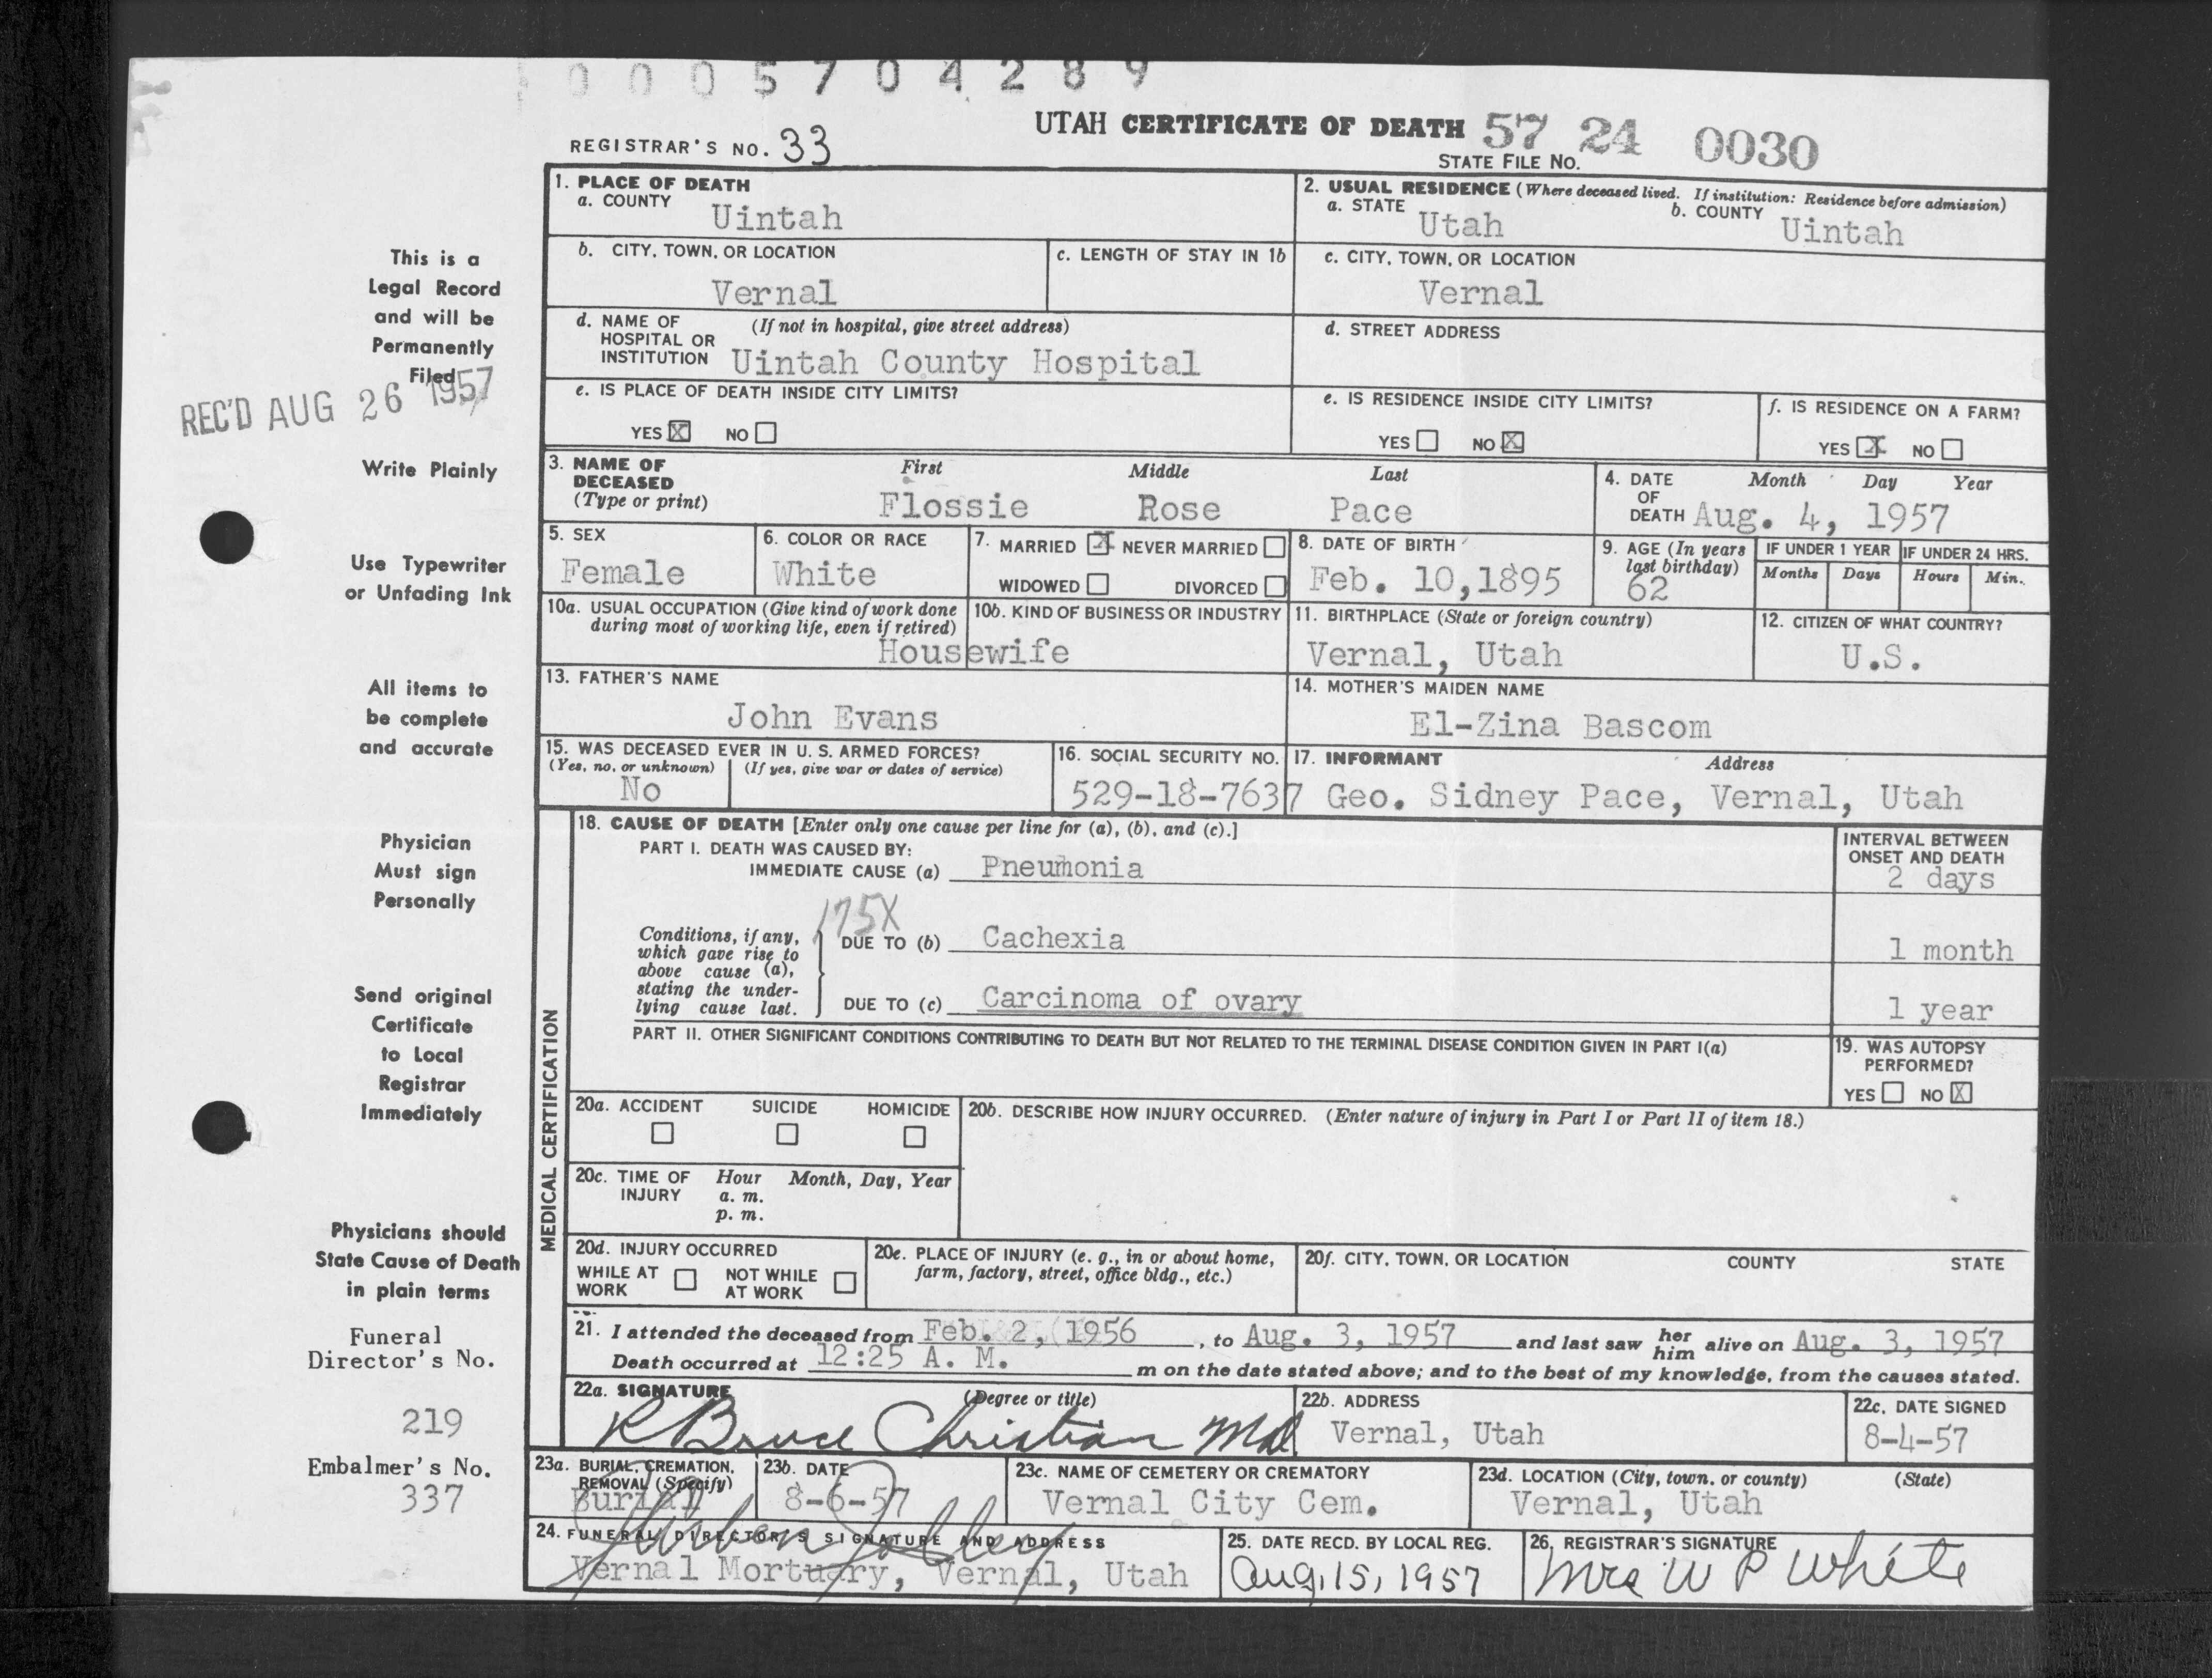 0005704289
UTAH CERTIFICATE OF DEATH 57 24 0030
REGISTRAR'S NO. 33
STATE FILE NO.
1. PLACE OF DEATH
a. COUNTY Uintah
2. USUAL RESIDENCE (Where deceased lived. If institution: Residence before admission)
a. STATE Utah b. COUNTY Uintah
b. CITY, TOWN, OR LOCATION Vernal
c. LENGTH OF STAY IN 1b
c. CITY, TOWN, OR LOCATION Vernal
d. NAME OF HOSPITAL OR INSTITUTION (If not in hospital, give street address) Uintah County Hospital
d. STREET ADDRESS
e. IS PLACE OF DEATH INSIDE CITY LIMITS?
YES X NO
e. IS RESIDENCE INSIDE CITY LIMITS?
YES NO X
f. IS RESIDENCE ON A FARM?
YES X NO
3. NAME OF DECEASED (Type or print)
First Middle Last
Flossie Rose Pace
4. DATE OF DEATH Month Day Year
Aug. 4, 1957
5. SEX
Female
6. COLOR OR RACE
White
7. MARRIED X NEVER MARRIED
WIDOWED DIVORCED
8. DATE OF BIRTH
Feb. 10,1895
9. AGE (In years last birthday)
62
IF UNDER 1 YEAR IF UNDER 24 HRS.
Months Days Hours Min.
10a. USUAL OCCUPATION (Give kind of work done during most of working life, even if retired)
10b. KIND OF BUSINESS OR INDUSTRY
Housewife
11. BIRTHPLACE (State or foreign country)
Vernal, Utah
12. CITIZEN OF WHAT COUNTRY?
U.S.
13. FATHER'S NAME
John Evans
14. MOTHER'S MAIDEN NAME
El-Zina Bascom
15. WAS DECEASED EVER IN U. S. ARMED FORCES?
(Yes, no, or unknown) (If yes, give war or dates of service)
No
16. SOCIAL SECURITY NO.
529-18-7637
17. INFORMANT Address
Geo. Sidney Pace, Vernal, Utah
MEDICAL CERTIFICATION
18. CAUSE OF DEATH [Enter only one cause per line for (a), (b), and (c).]
INTERVAL BETWEEN ONSET AND DEATH
PART I. DEATH WAS CAUSED BY:
IMMEDIATE CAUSE (a) Pneumonia 2 days
175X
Conditions, if any, which gave rise to above cause (a), stating the underlying cause last.
DUE TO (b) Cachexia 1 month
DUE TO (c) Carcinoma of ovary 1 year
PART II. OTHER SIGNIFICANT CONDITIONS CONTRIBUTING TO DEATH BUT NOT RELATED TO THE TERMINAL DISEASE CONDITION GIVEN IN PART I(a)
19. WAS AUTOPSY PERFORMED?
YES NO X
20a. ACCIDENT SUICIDE HOMICIDE
20b. DESCRIBE HOW INJURY OCCURRED. (Enter nature of injury in Part I or Part II of item 18.)
20c. TIME OF INJURY Hour Month, Day, Year
a. m.
p. m.
20d. INJURY OCCURRED
WHILE AT WORK NOT WHILE AT WORK
20e. PLACE OF INJURY (e. g., in or about home, farm, factory, street, office bldg., etc.)
20f. CITY, TOWN, OR LOCATION COUNTY STATE
21. I attended the deceased from Feb. 2, 1956, to Aug. 3, 1957 and last saw her him alive on Aug. 3, 1957
Death occurred at 12:25 A. M. m on the date stated above; and to the best of my knowledge, from the causes stated.
22a. SIGNATURE (Degree or title)
R Bruce Christian Md
22b. ADDRESS
Vernal, Utah
22c. DATE SIGNED
8-4-57
23a. BURIAL, CREMATION, REMOVAL (Specify)
Burial
23b. DATE
8-6-57
23c. NAME OF CEMETERY OR CREMATORY
Vernal City Cem.
23d. LOCATION (City, town, or county) (State)
Vernal, Utah
24. FUNERAL DIRECTOR'S SIGNATURE AND ADDRESS
Vernal Mortuary, Vernal, Utah
25. DATE RECD. BY LOCAL REG.
Aug, 15, 1957
26. REGISTRAR'S SIGNATURE
Mrs W P White
This is a
Legal Record
and will be
Permanently
Filed
REC'D AUG 26 1957
Write Plainly
Use Typewriter
or Unfading Ink
All items to
be complete
and accurate
Physician
Must sign
Personally
Send original
Certificate
to Local
Registrar
Immediately
Physicians should
State Cause of Death
in plain terms
Funeral
Director's No.
219
Embalmer's No.
337